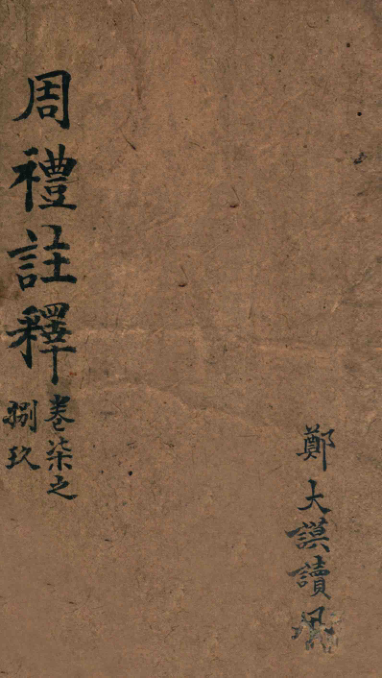 周禮註釋
卷柒之
捌玖
鄭大謨讀